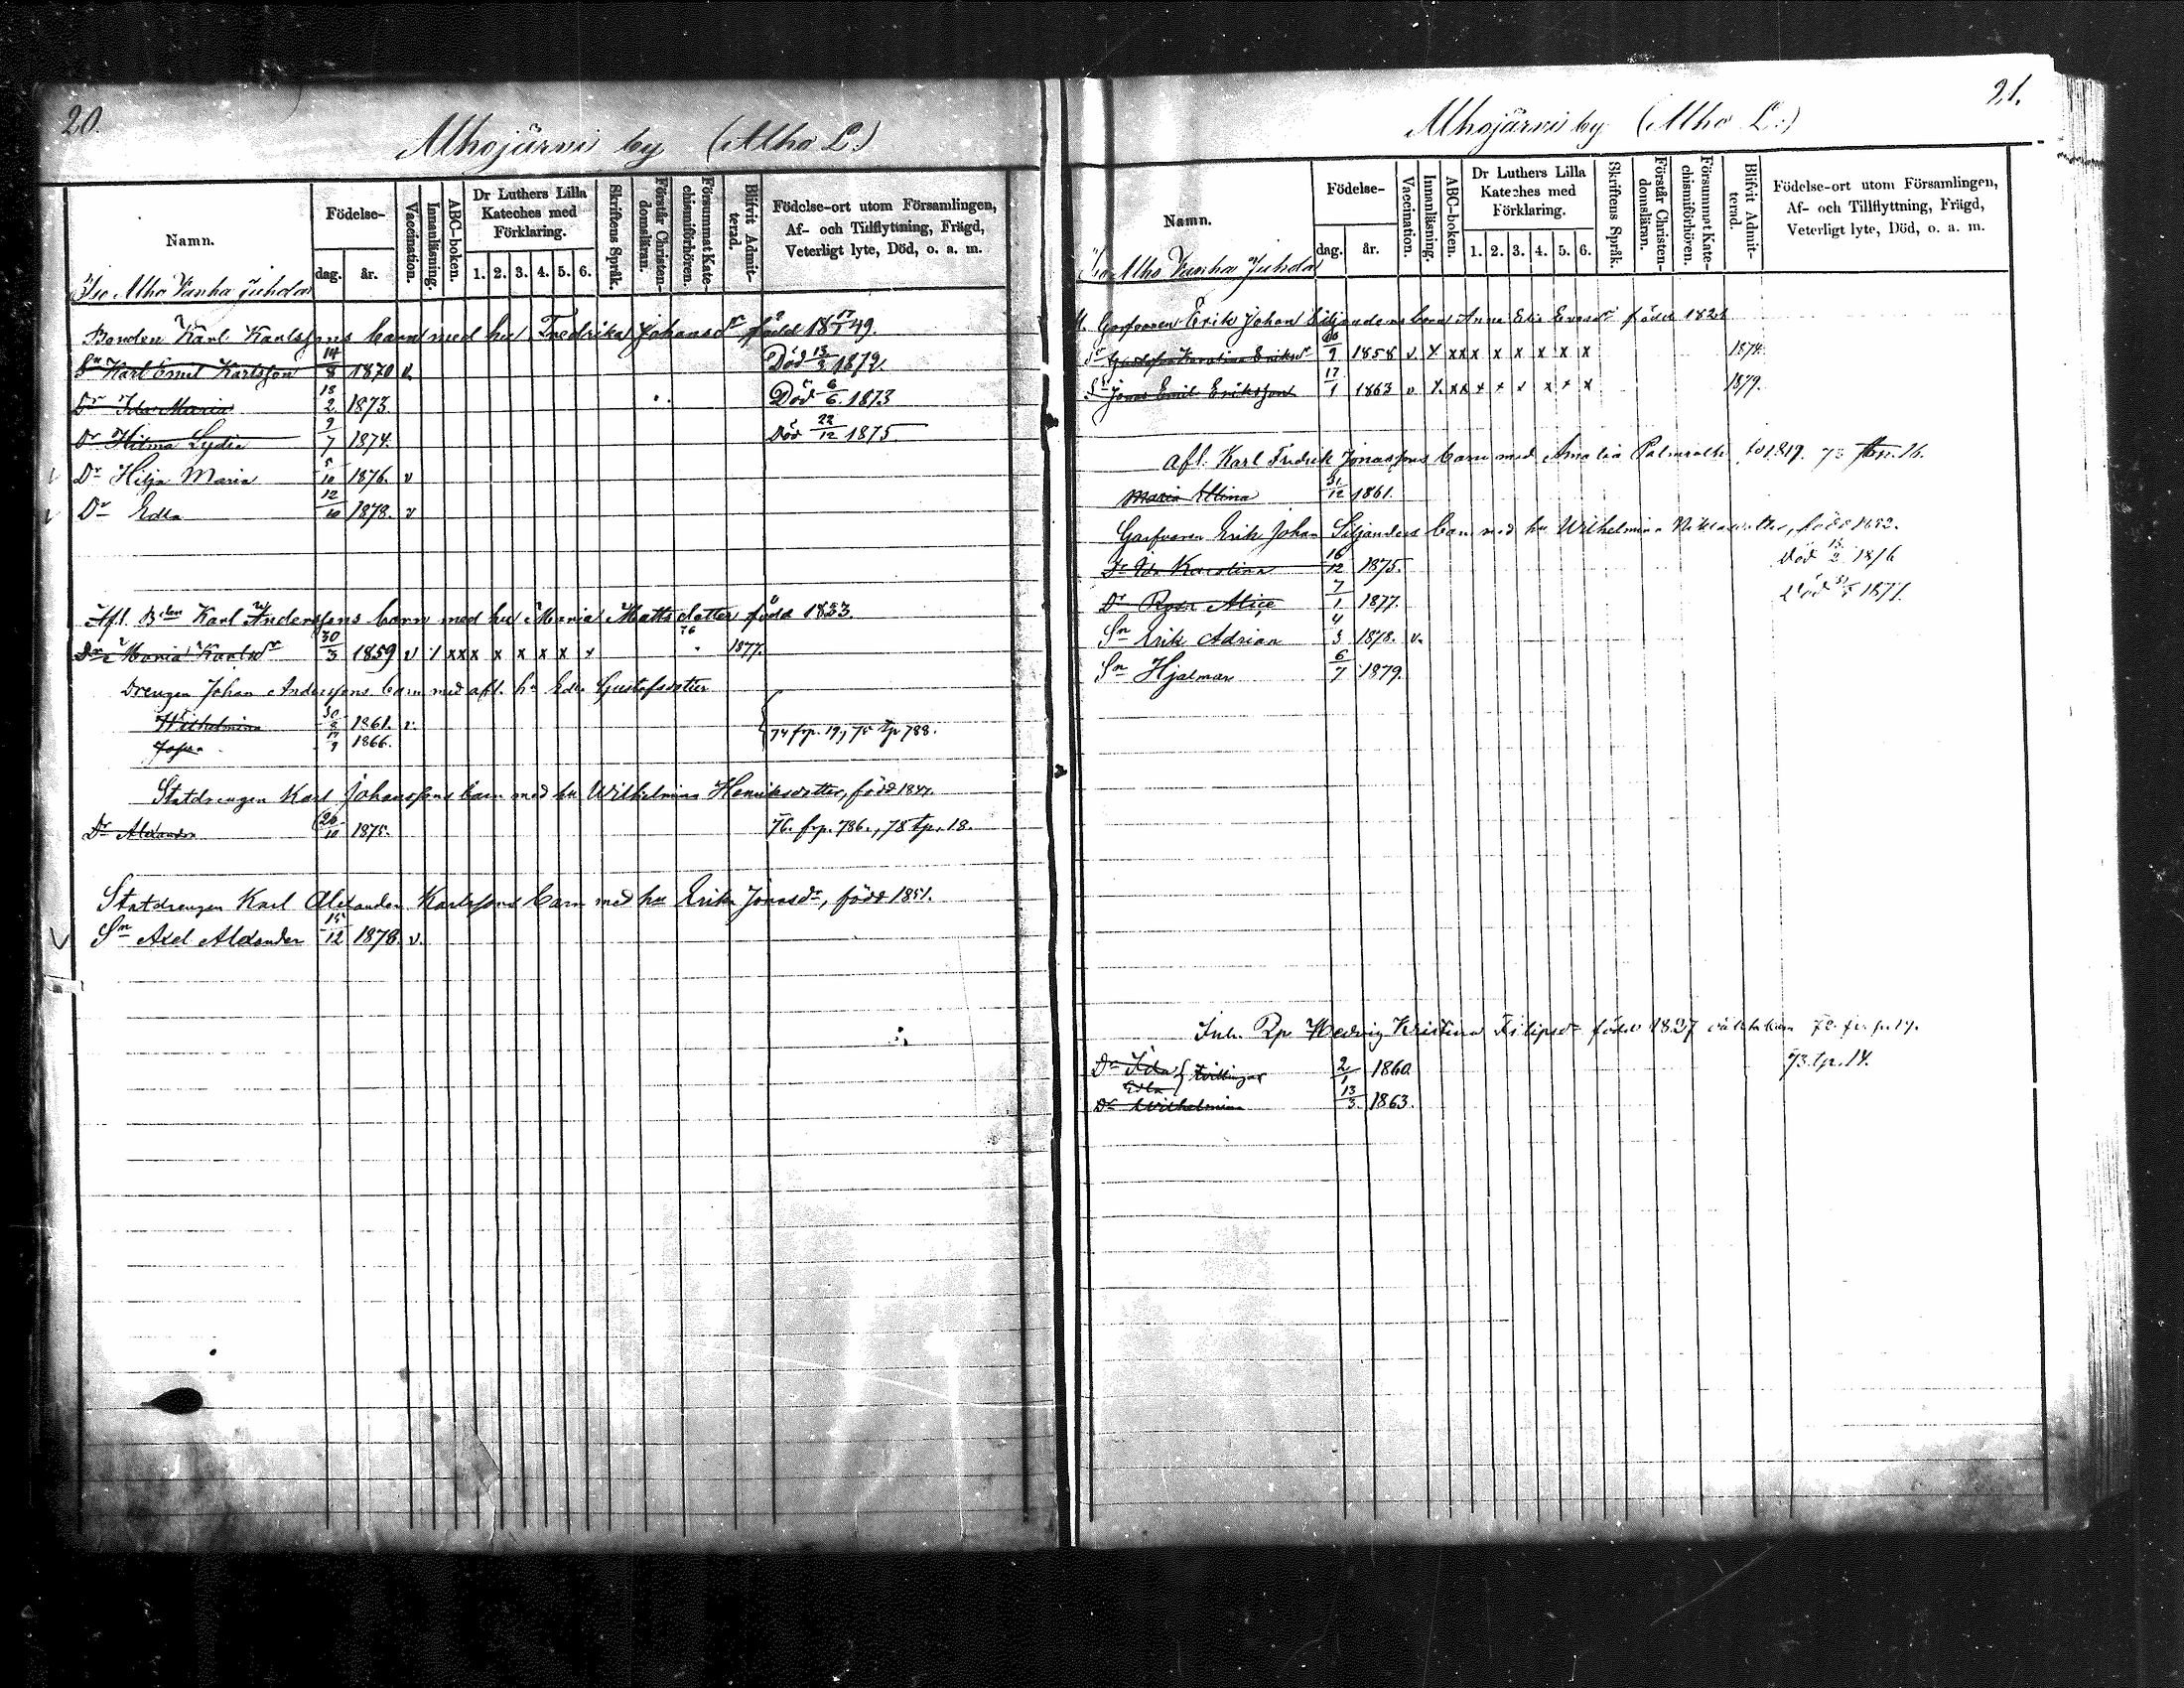 20.
Alhojärvi by (Alho L.)
Namn. Födelse- dag. år. Vaccination. Innanläsning. ABC-boken. Dr Luthers Lilla Kateches med Förklaring. 1. 2. 3. 4. 5. 6. Skriftens Språk. Förstår Christendomsläran. Försummat Katechismiförhören. Blifvit Admitterad. Födelse-ort utom Församlingen, Af- och Tillflyttning, Frägd, Veterligt lyte, Död, o. a. m.
Iso Alho Vanha Juhda
Bonden Karl Karlssons barn med hu Fredrika Johansdr född 1849.
Sn Karl Emil Karlsson 14/8 1870 v. Död 13/2 1872.
Dr Ida Maria 18/2 1873. Död 6/6 1873
Dr Hilma Lydia 9/7 1874. Död 22/12 1875
Dr Hilja Maria 5/10 1876. v
Dr Edla 12/10 1878. v
Afl. Bden Karl Anderssons barn med hu Maria Mattsdotter född 1833.
Dr Maria Karlsdr 30/3 1859 v / x x x x x x x x 76 1877.
Drengen Johan Anderssons barn med afl. hu Edla Gustafsdotter
Wilhelmina 30/8 1861. v.
1866. 74 frp. 19, 75 tp 788.
Statdrengen Karl Johanssons barn med hu Wilhelmina Henriksdotter, född 1847.
Dr Alexandra 26/10 1875. 76. frp. 786., 78 tp. 18.
Statdrengen Karl Alexander Karlssons barn med hu Erika Jonasdr, född 1851.
Sn Axel Alexander 15/12 1878. v.
21.
Alhojärvi by (Alho L:)
Namn. Födelse- dag. år. Vaccination. Innanläsning. ABC-boken. Dr Luthers Lilla Kateches med Förklaring. 1. 2. 3. 4. 5. 6. Skriftens Språk. Förstår Christendomsläran. Försummat Katechismiförhören. Blifvit Admitterad. Födelse-ort utom Församlingen, Af- och Tillflyttning, Frägd, Veterligt lyte, Död, o. a. m.
Iso Alho Vanha Juhda
Garfvaren Erik Johan Siljanders barn Anna Eva Ersdr född 1821
Gustafva Karolina Eriksdr 26/9 1858 v. x x x x x x x x x 1874.
Sn Jonas Emil Eriksson 17/1 1863 v x x x x x x x x x 1879.
Afl. Karl Fredrik Jonassons barn med Amalia Palmroth fö 1819. 73 16.
Maria Allina 31/12 1861.
Garfvaren Erik Johan Siljanders barn med hu Wilhelmina född 1852.
Dr Ida Karolina 16/12 1875. Död 13/2 1876
Dr Rosa Alice 7/1 1877. Död 1877.
Sn Erik Adrian 4/3 1878. v.
Sn Hjalmar 6/7 1879.
Inh. Hedvig Kristina Filipsdr född 1827 72. fr. p. 19.
73. tp. 14.
Dr Ida } tvillingar 2/1 1860.
Edla
Dr Wilhelmina 13/3 1863.